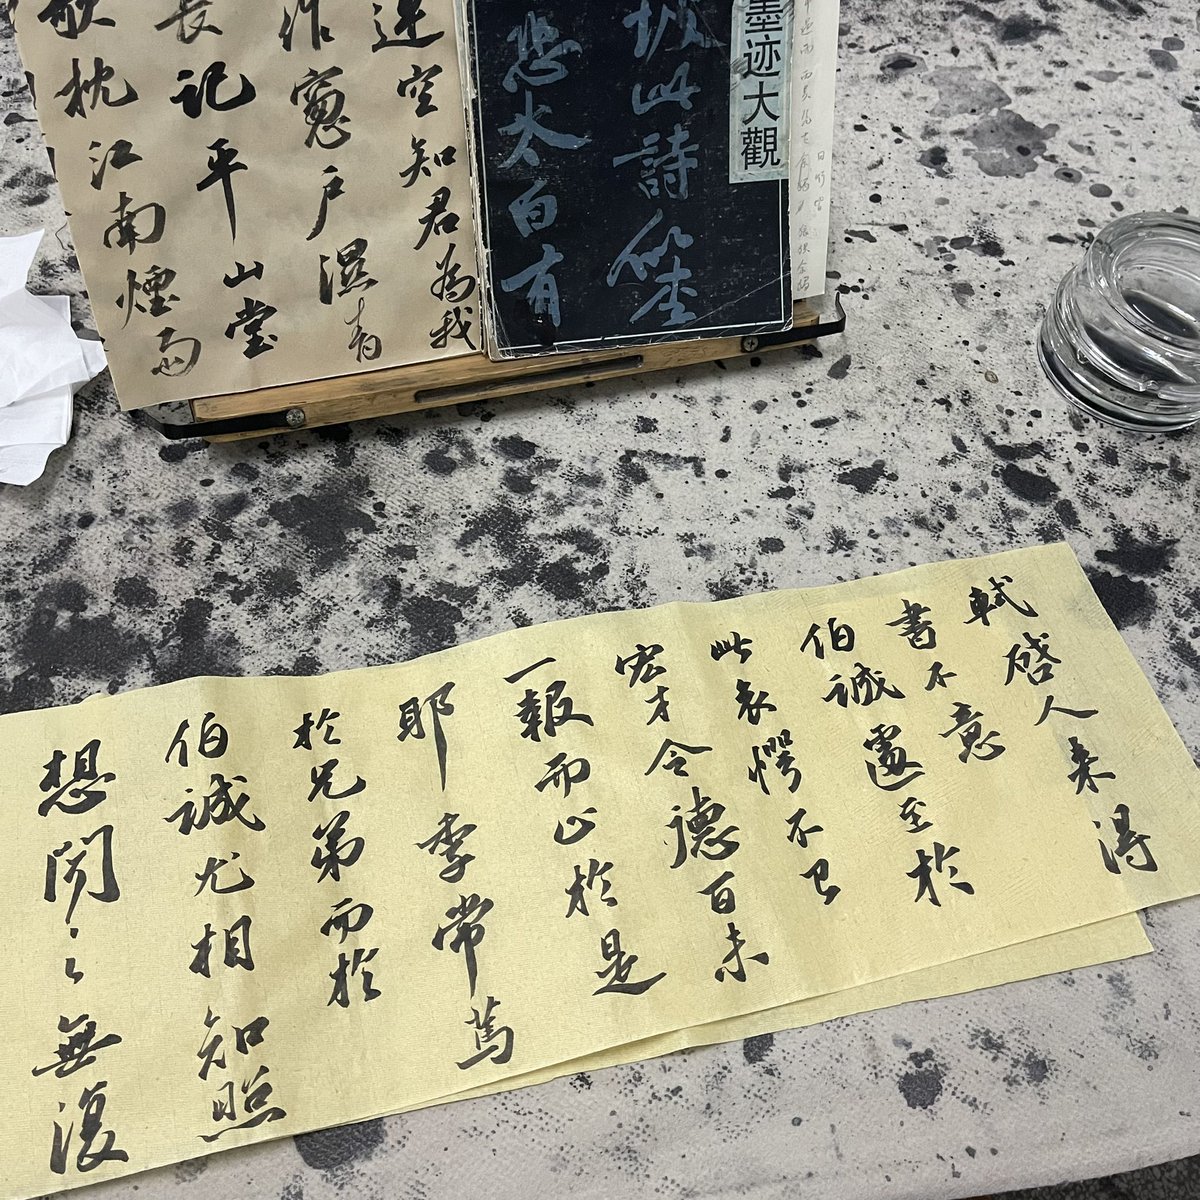 墨迹大觀
坡此詩似李
恐太白有
連空知君為我
作窻户濕青
長記平山堂
欹枕江南煙雨
軾啓人来得
書不意
伯誠遽至於
此哀愕不已
宏才令德百未
一報而止於是
耶季常篤
於兄弟而於
伯誠尤相知照
想聞之無復